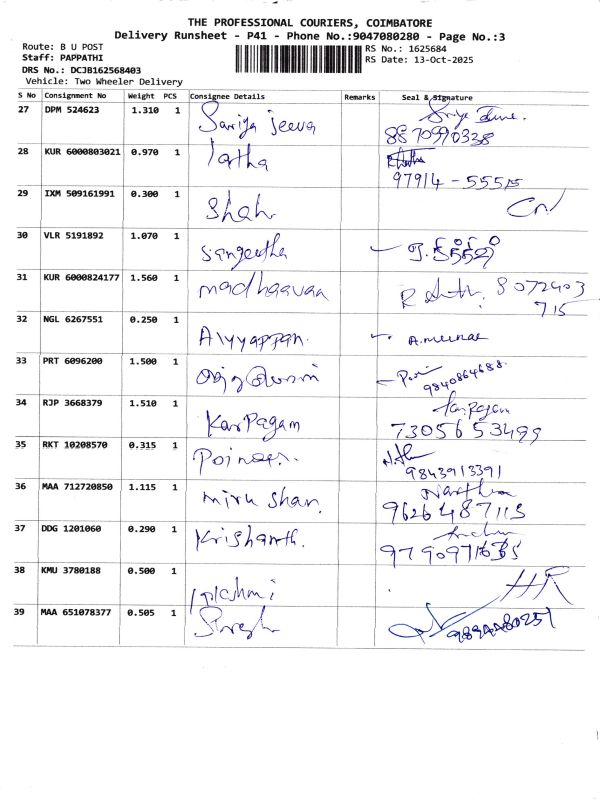 THE PROFESSIONAL COURIERS, COIMBATORE
Delivery Runsheet - P41 - Phone No.:9047080280 - Page No.:3
Route: B U POST
RS No.: 1625684
Staff: PAPPATHI
RS Date: 13-Oct-2025
DRS No.: DCJB162568403
Vehicle: Two Wheeler Delivery
S No Consignment No Weight PCS Consignee Details Remarks Seal & Signature
27 DPM 524623 1.310 1 Sariya Jeeva
8870990338
28 KUR 6000803021 0.970 1 latha
97914 - 55515
29 IXM 509161991 0.300 1 Shah
30 VLR 5191892 1.070 1 Sangeetha
31 KUR 6000824177 1.560 1 madhaavaa 8072403
715
32 NGL 6267551 0.250 1 Aiyyappan. A.meenae
33 PRT 6096200 1.500 1
9840864688.
34 RJP 3668379 1.510 1 KarPagam Karpagam
7305653499
35 RKT 10208570 0.315 1
9843913391
36 MAA 712720850 1.115 1
9626487113
37 DDG 1201060 0.290 1 Krishanth.
38 KMU 3780188 0.500 1 lakshmi HR
39 MAA 651078377 0.505 1 Suresh